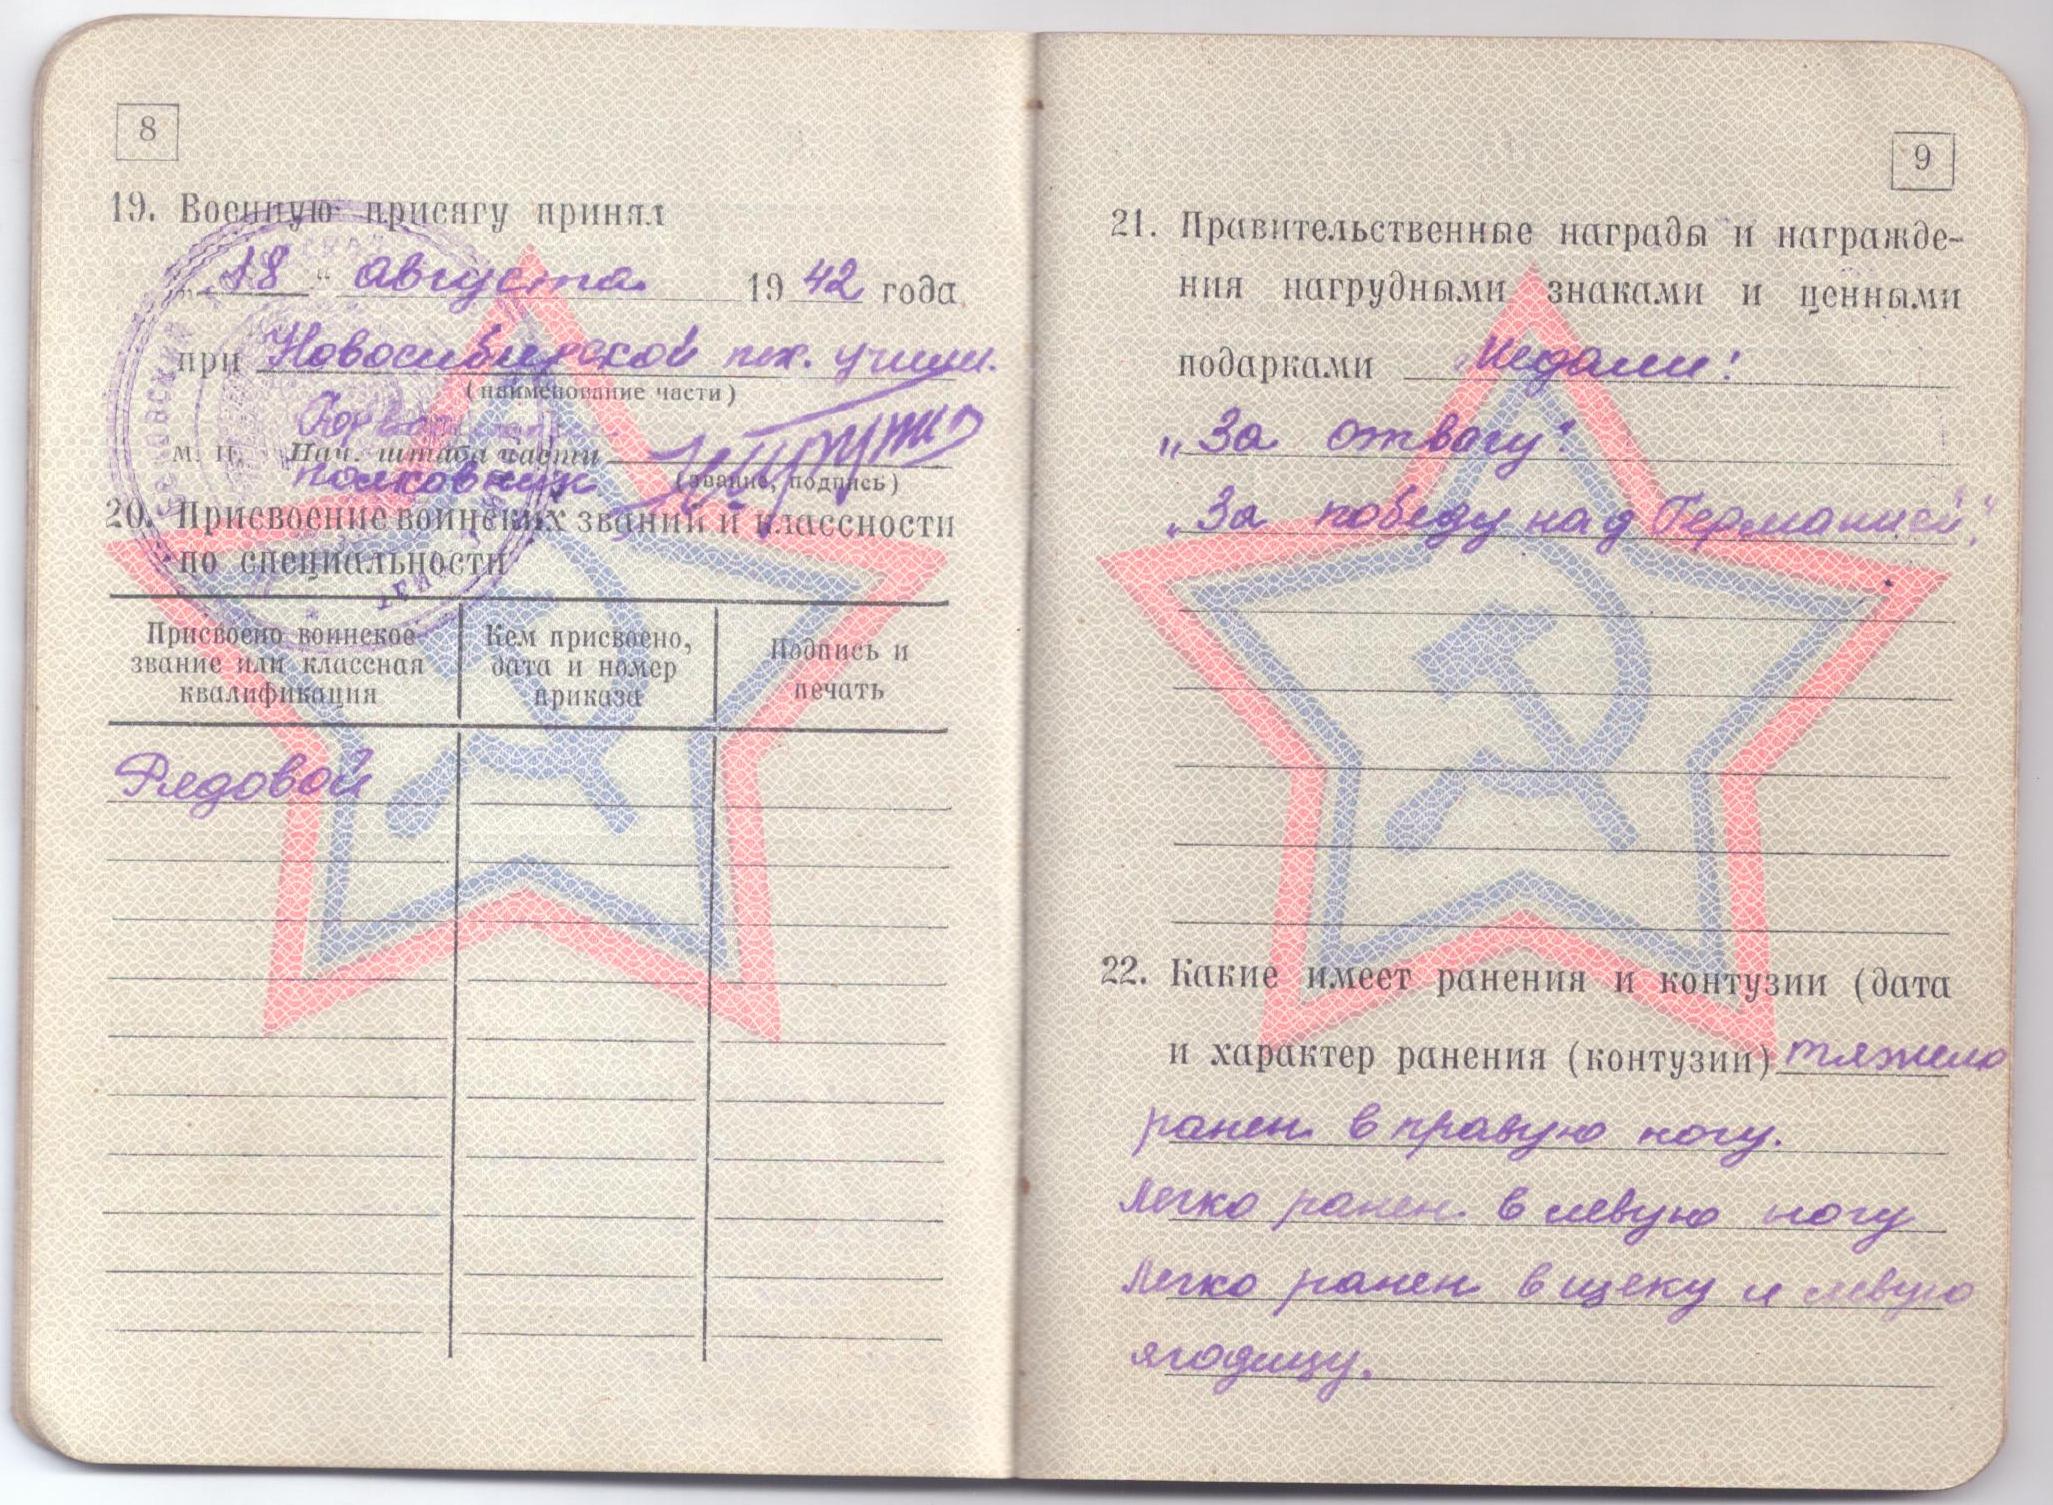 8
19. Военную присягу принял
„18“ августа 1942 года
при Новосибирской пех. учили.
(наименование части)
М. П. Нач. штаба части
полковник
(звание, подпись)
20. Присвоение воинских званий и классности
по специальности
Присвоено воинское
звание или классная
квалификация
Кем присвоено,
дата и номер
приказа
Подпись и
печать
Рядовой
9
21. Правительственные награды и награжде-
ния нагрудными знаками и ценными
подарками Медали:
„За отвагу“
„За победу над Германией“
22. Какие имеет ранения и контузии (дата
и характер ранения (контузии) тяжело
ранен в правую ногу.
Легко ранен в левую ногу
Легко ранен в щеку и левую
ягодицу.